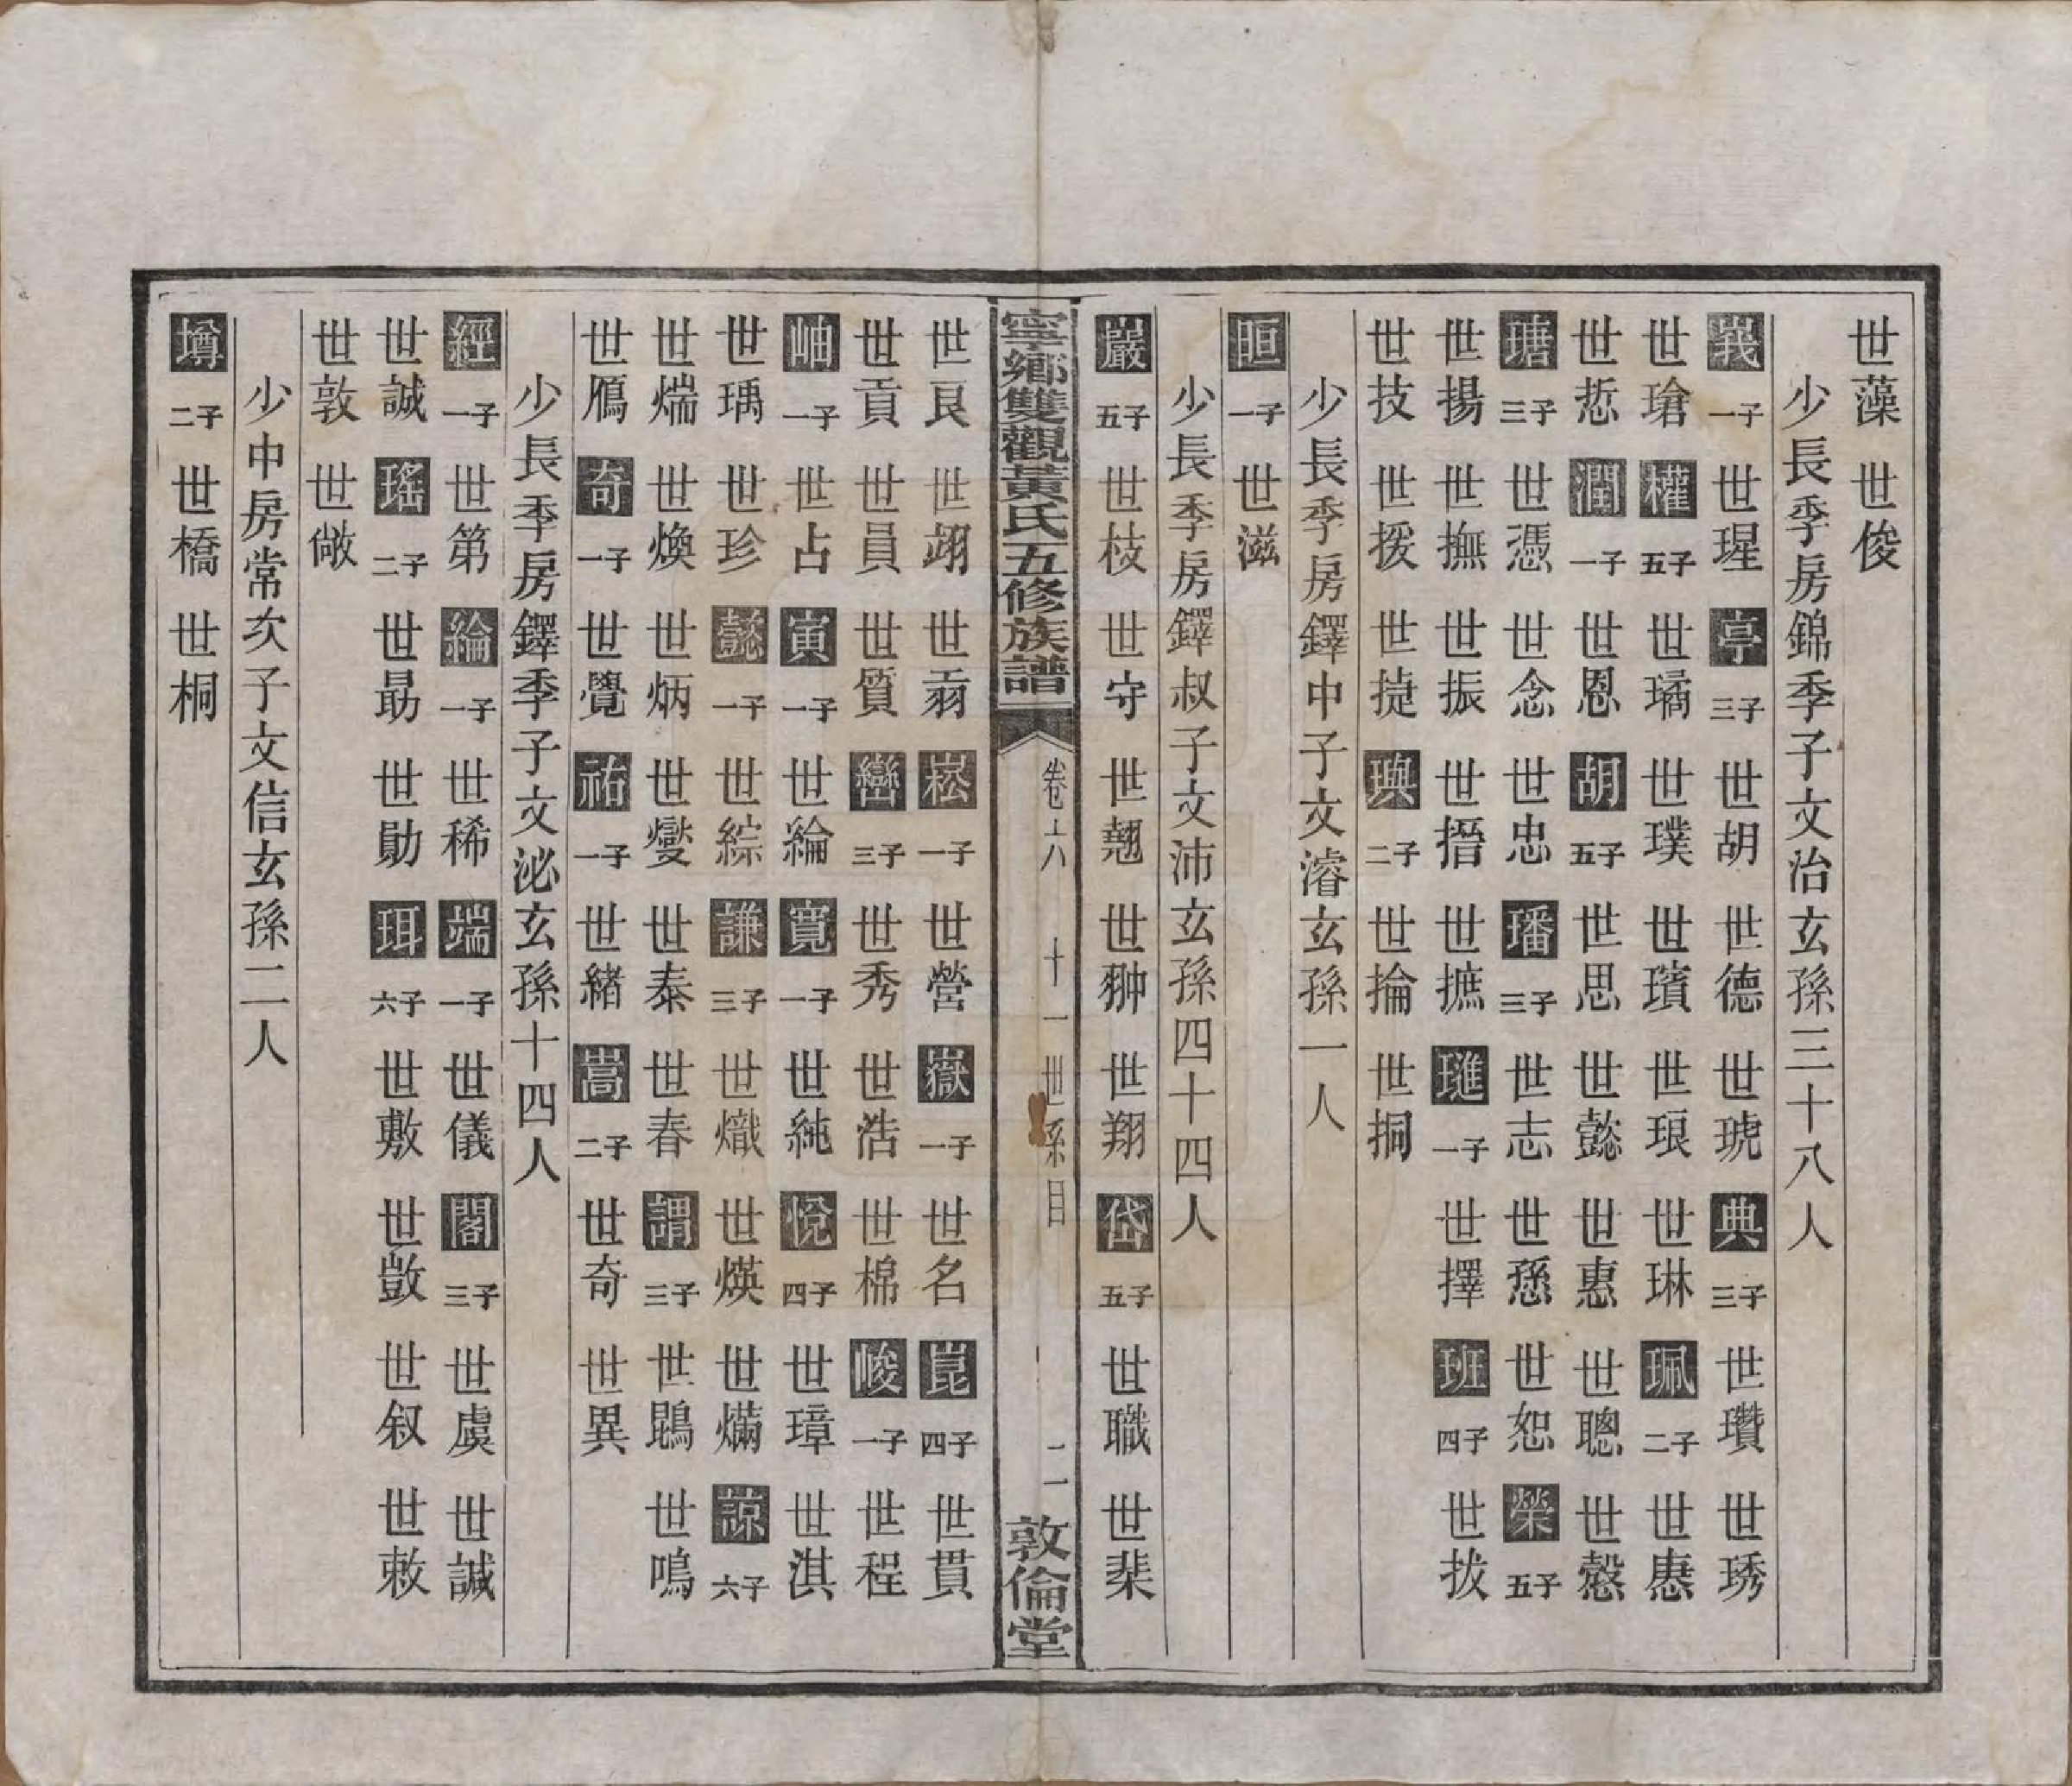 世藻　世俊
少長季房錦季子文治玄孫三十八人
峩一子　世瑆　亭三子　世胡　世德　世琥　典三子　世瓚　世琇
世瑲　權五子　世璚　世璞　世璸　世琅　世琳　珮二子　世慐
世悊　潤一子　世恩　胡五子　世思　世懿　世惠　世聰　世慇
瑭三子　世憑　世念　世忠　璠三子　世志　世慈　世恕　榮五子
世揚　世撫　世振　世搢　世摭　璡一子　世擇　班四子　世拔
世技　世援　世捷　璵二子　世掄　世挏
少長季房鐸中子文濬玄孫一人
晅一子　世滋
少長季房鐸叔子文沛玄孫四十四人
巖五子　世枝　世守　世翹　世翀　世翔　岱五子　世職　世棐
寧鄉雙觀黃氏五修族譜　卷六　十一世系目　二　敦倫堂
世艮　世翊　世翦　崧一子　世營　嶽一子　世名　崑四子　世貫
世貢　世員　世質　巒三子　世秀　世浩　世棉　峻一子　世程
岫一子　世占　寅一子　世綸　寬一子　世純　悅四子　世璋　世淇
世瑀　世珍　懿一子　世綜　謙三子　世熾　世煐　世㒼　諒六子
世煓　世煥　世炳　世燮　世泰　世春　謂三子　世鵾　世鳴
世鴈　奇一子　世覺　祐一子　世緒　嵩二子　世奇　世異
少長季房鐸季子文泌玄孫十四人
經一子　世第　綸一子　世稀　端一子　世儀　閣三子　世虞　世諴
世誠　瑤二子　世勗　世勛　珥六子　世敷　世敳　世叙　世敕
世敦　世敞
少中房常次子文信玄孫二人
墫二子　世橋　世桐